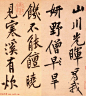 山川光暉為我
妍野僧早旱
饑不能饘曉
見寒溪有炊